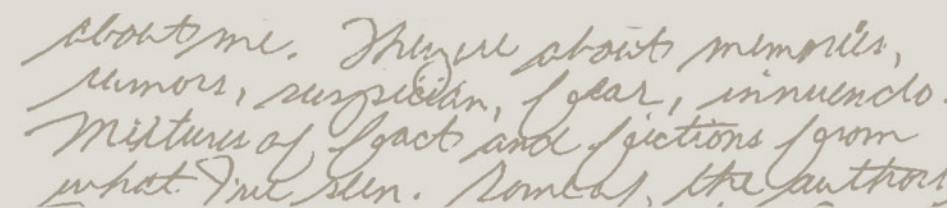 about me. They're about memories,
rumors, suspician, fear, innuendo.
Mixtures of fact and fictions from
what I've seen. Some of the authors